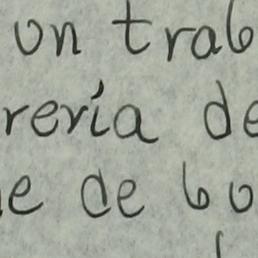 on trab
rería de
e de bo